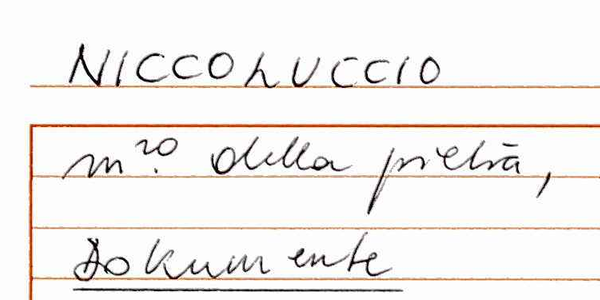 NICCOLUCCIO
m.ro della pietra,
Dokumente